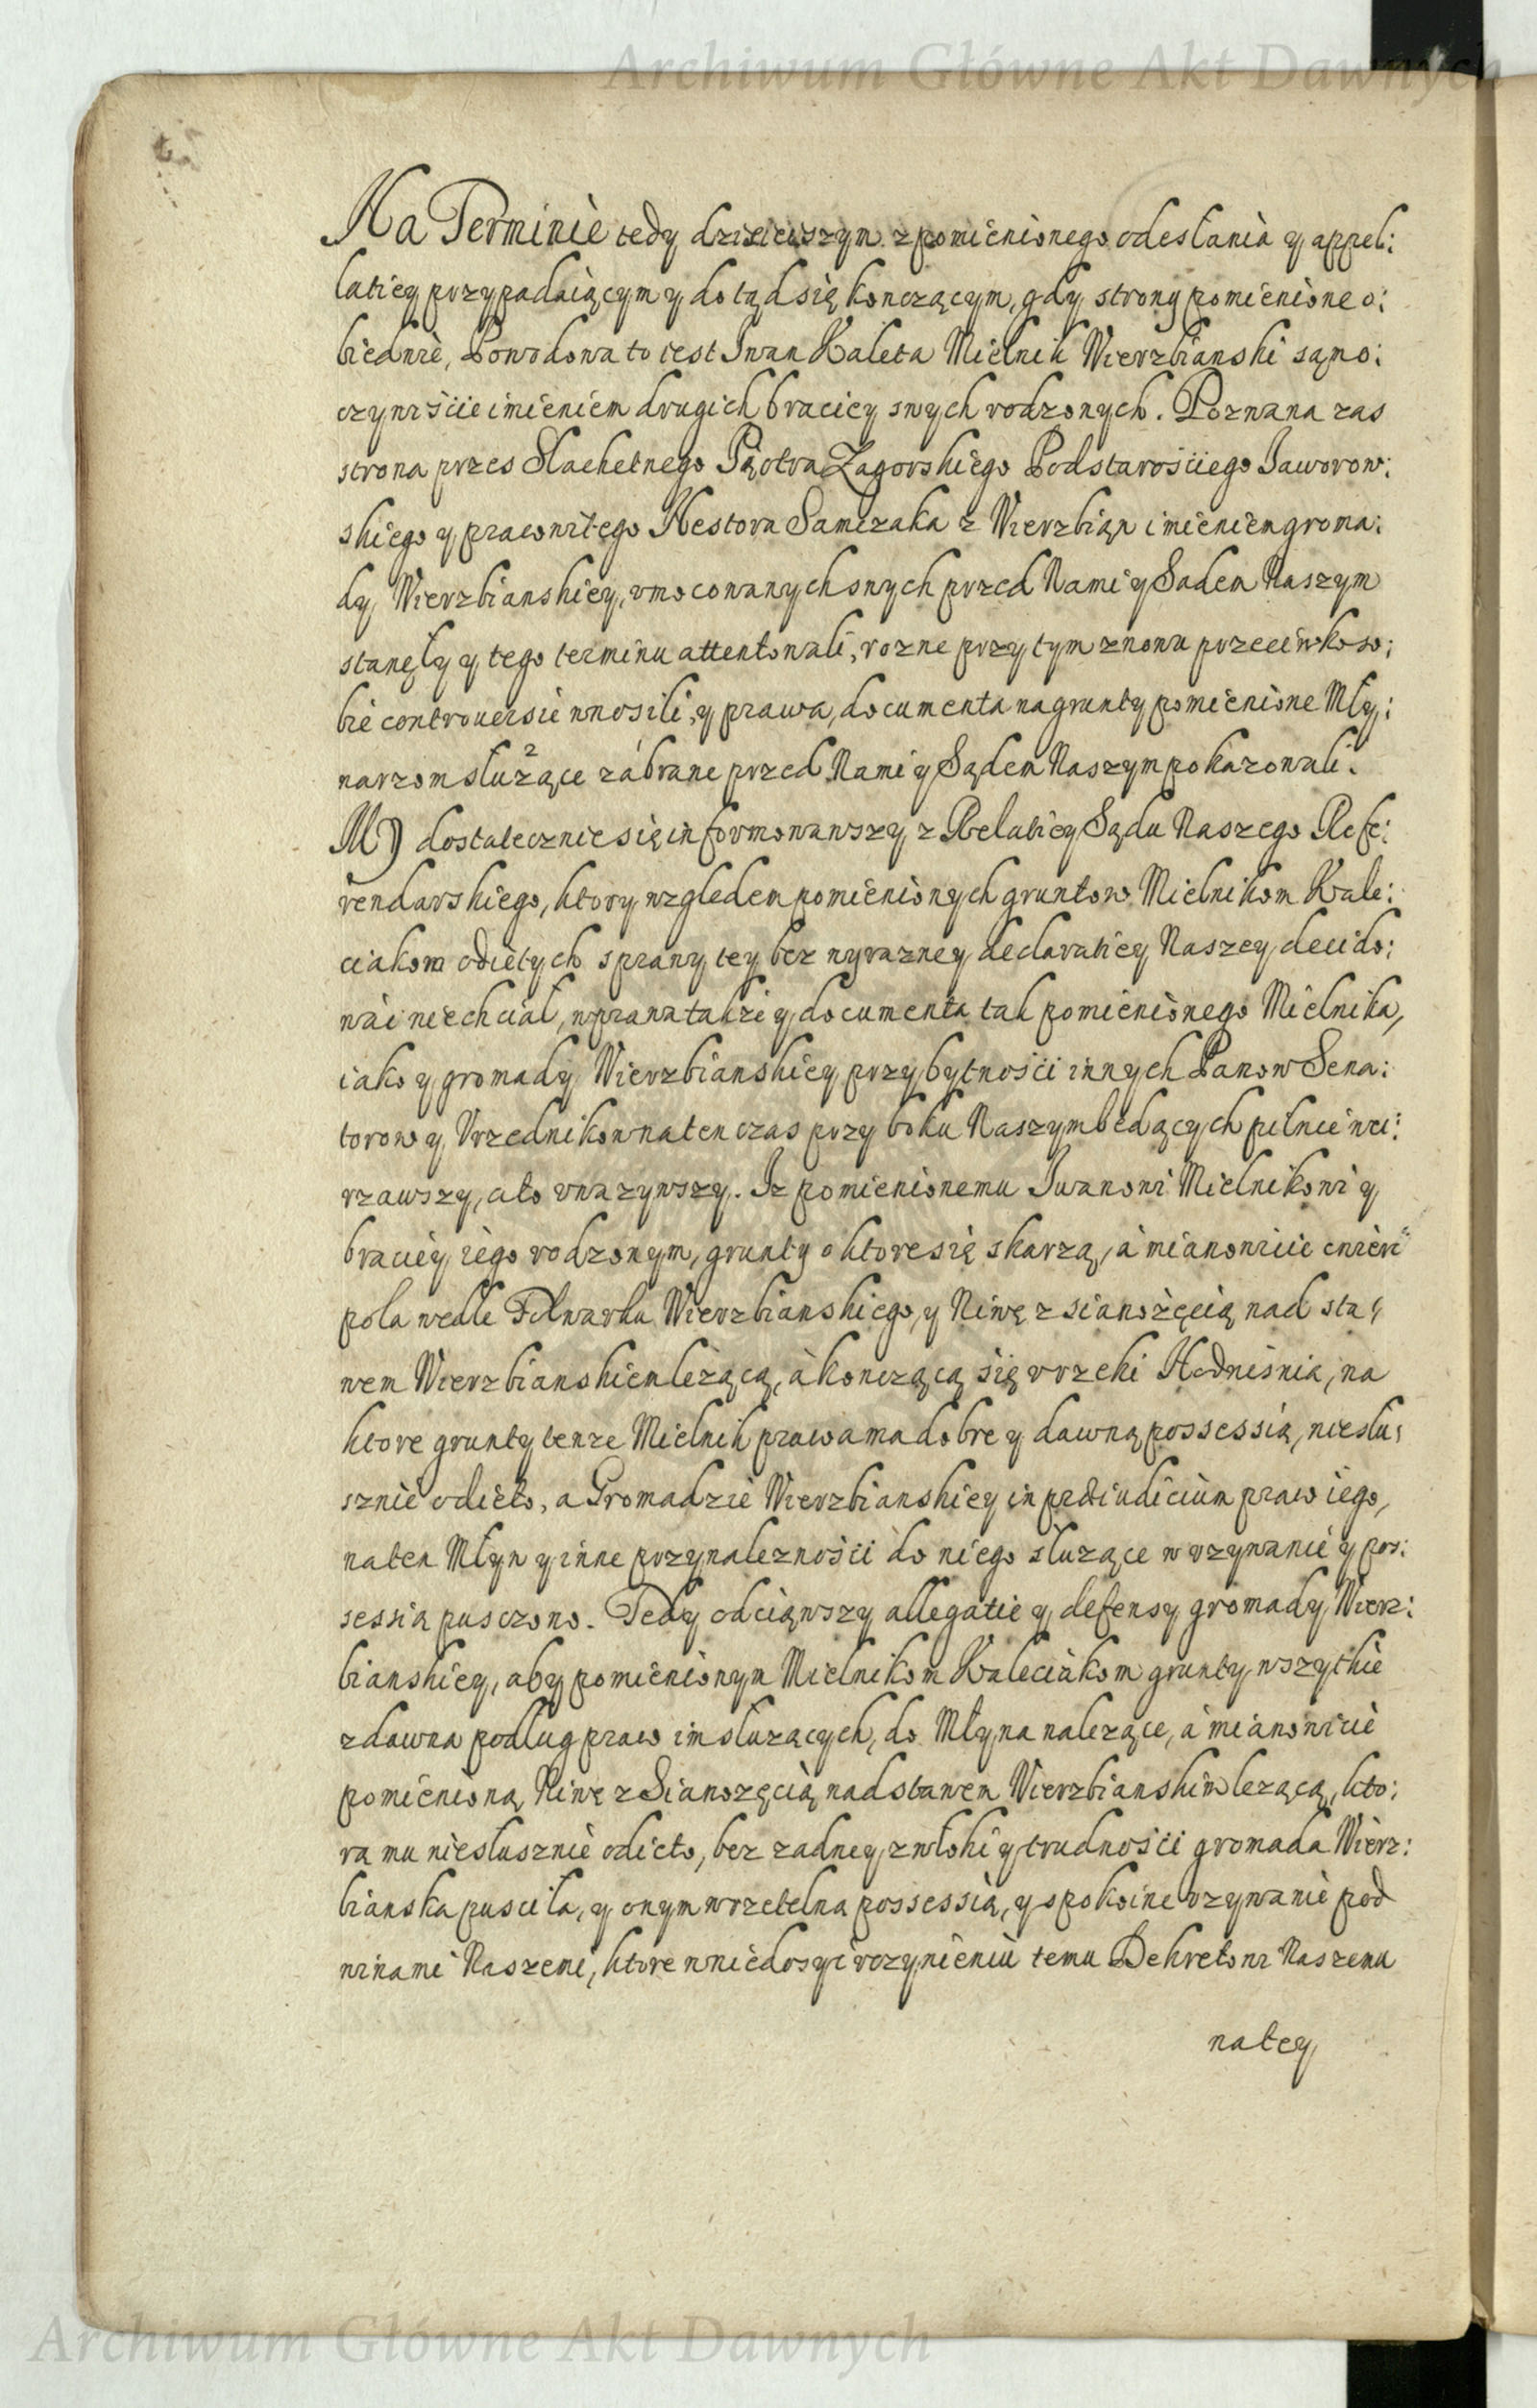 Archiwum Główne Akt Dawnych
Na Terminie tedy dzisieiszym z pomienionego odesłania y appel:
latiey przypadaiącym y dotąd się konczącym, gdy strony pomienione o:
biedwie, Powodowa to iest Iwan Kaleta Mielnik Wierzbianski sąmo:
czyniście imieniem drugich braciey swych rodzonych. Pozwana zas
strona przes Slachetnego Piotra Zagorskiego Podstarościego Jaworow:
skiego y pracowitego Nestora Samczaka z Wierzbiąn imieniem groma:
dy Wierzbianskiey, vmocowanych swych przed Nami y Sadem Naszym
stanęły y tego terminu attentowali, rozne przytym znowu przeciwko so:
bie controuersie wnosili, y prawa, documenta na grunty pomienione Mły:
narzom służące zabrane przed Nami y Sądem Naszym pokazowali.
My dostatecznie się informowawszy z Relatiey Sądu Naszego Refe:
rendarskiego, ktory względem pomienionych gruntow Mielnikom Kale:
ciakom odiętych sprawy tey bez wyrazney declaratiey Naszey decido:
wać niechciał, w prawa takze y documenta tak pomienionego Mielnika,
iako y gromady Wierzbianskiey przy bytności innych Panow Sena:
torow y Vrzednikow na ten czas przy boku Naszym będących pilnie wei:
rzawszy, a to vwazywszy. Iz pomienionemu Iwanowi Mielnikowi y
braciey iego rodzonym, grunty o ktore się skarzą, a mianowicie cwierc
pola wedle Folwarku Wierzbianskiego, y Niwę z sianożęcią nad sta:
wem Wierzbianskiem leżącą, a konczącą się v rzeki Hodniśnia, na
ktore grunty tenze Mielnik prawa ma dobre y dawną possessią, niesłu:
sznie odięto, a Gromadzie Wierzbianskiey in præiudicium praw iego,
na ten Młyn y inne przynalezności do niego słuzące w vzywanie y pos:
sessią pusczono. Tedy odciąwszy allegatie y defensy gromady Wierz:
bianskiey, aby pomienionym Mielnikom Kaleciakom grunty wszytkie
zdawna podług praw im słuzących, do Młyna nalezące, a mianowicie
pomienioną Niwę z Sianozęcią nad stawem Wierzbianskim lezącą, kto:
ra mu niesłusznie odięto, bez zadney zwłoki y trudności gromada Wierz:
bianska pusciła, y onym w rzetelna possessią, y spokoine vzywanie pod
winami Naszemi, ktore w niedosyć vczynieniu temu Dekretowi Naszemu
na tey
Archiwum Główne Akt Dawnych